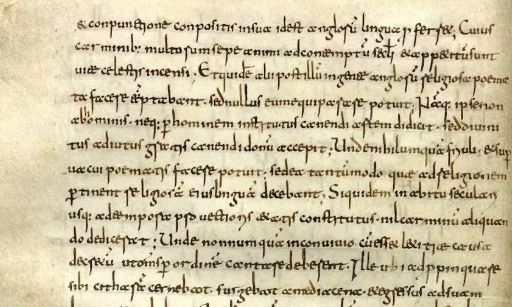 & conpunctione conpositis insua idest anglorū lingua pferr&. Cuius
carminib; multorum sepe animi adcontemptū secli & app&itū sunt
uitae celestis incensi. Et quidē & alii post illū ingente anglorū religiosa poema
ta facere tēptabant. sed nullus eum equiparare potuit. Nāq; ipse non
ab hominis. neq; p hominem institutus canendi artem didicit. sed diuini
tus adiutus gratis canendi donū accepit; Unde nihil umquā friuoli. & sup
uacui poematis facere potuit. sed ea tantūmodo quae ad religionem
ptinent religiosā eius linguā decebant; Siquidem in abitu seculari
usq; ad tempora prouectioris &atis constitutus. nil carminū aliquan
do dicerat; Unde nonnumquā inconuiuio cū ess& l&itiae causa
decr&ū ut oms p ordinē cantare deberent. Ille ubi adppinquare
sibi citharā cernebat. surgebat amedia cena & egressus ad suam